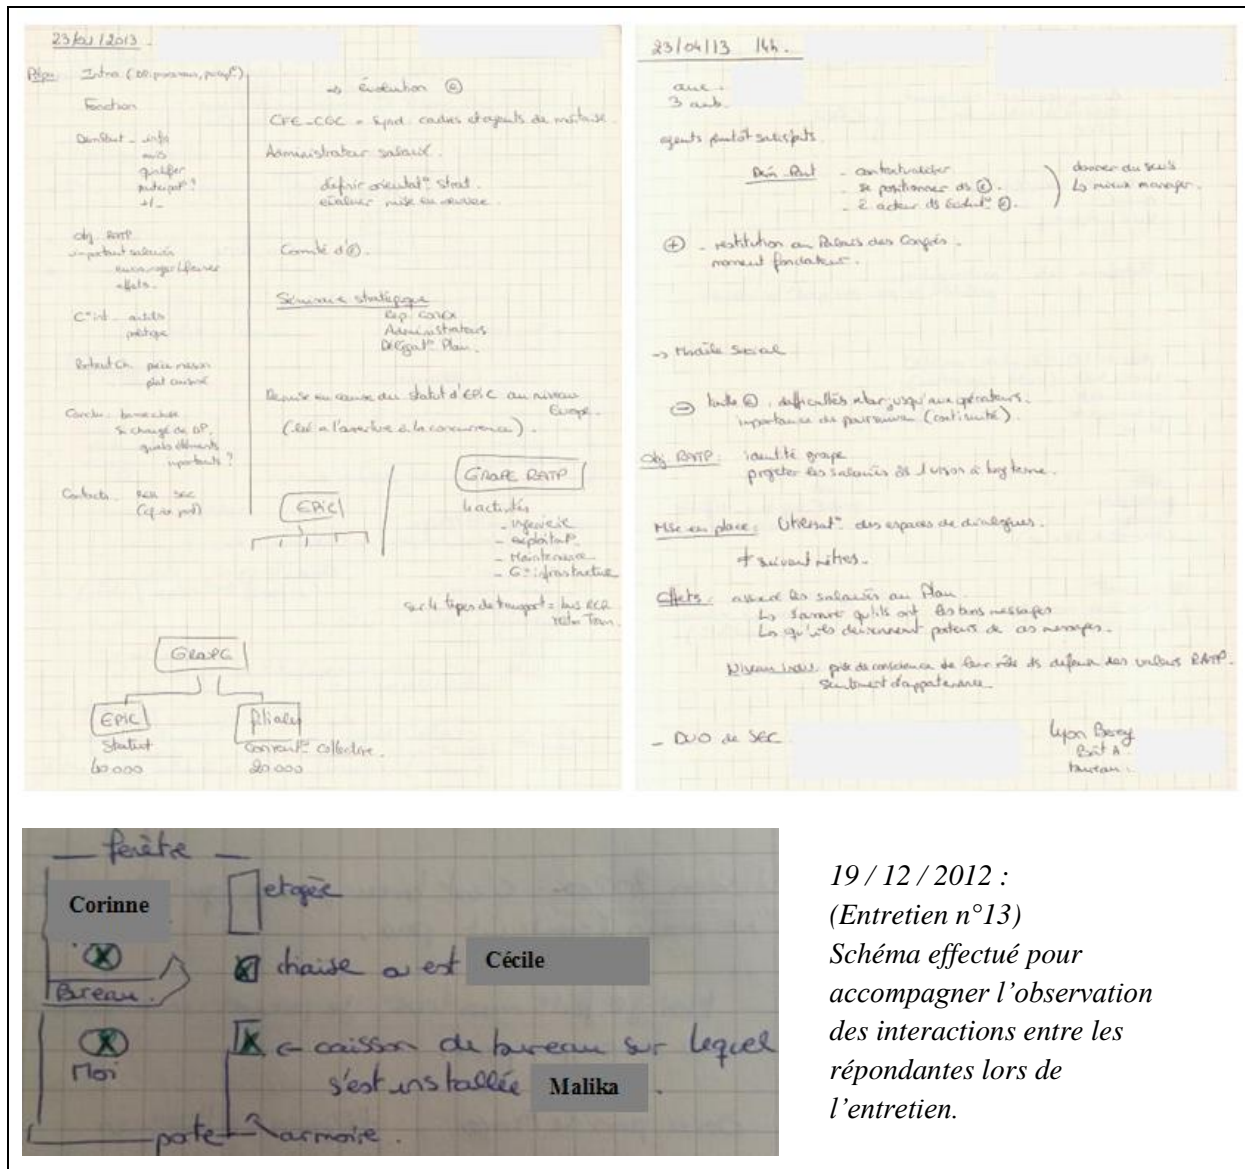 23/01/2013.
Prépa Intro
Fonction
Dem Part - info
avis
qualifier
participat° ?
+/-
obj. RATP
important salariés
encourager
effets.
C° int. outils
Retour Ch.
plat cuisiné
Conclu. bonne chose
si chargé de DP.
quels éléments
importants ?
Contacts
→ évolution (E)
CFE-CGC = Synd. cadres et agents de maîtrise.
Administrateur salarié.
définir orientat° strat.
évaluer mise en oeuvre.
Comité d'(E).
Séminaire stratégique
Rep. Comex
Administrateurs
Délégat° Plan.
Remise en cause du statut d'EPIC au niveau
Europe.
(lié à l'ouverture à la concurrence).
EPIC
GROUPE RATP
4 activités
- ingénierie
- exploitat°.
- Maintenance
- G° infrastructure
sur 4 types de transport = bus RER
métro Tram.
GROUPE
EPIC
filiales
Statut
Convent° collective.
40 000
20 000
23/04/13 14h.
avec
3 ans.
agents plutôt satisfaits.
Dém. Part - contextualiser
- se positionner ds (E).
- ê acteur ds évolut° (E).
donner du sens
↳ mieux manager.
(+) - restitution au Palais des Congrès.
moment fondateur.
→ Modèle Social
(-) difficultés aller jusqu'aux opérateurs.
importance de poursuivre (continuité).
Obj. RATP : identité groupe
projeter les salariés ds 1 vision à long terme.
Mise en place : Utilisat° des espaces de dialogues.
≠ suivant métiers.
Effets : associer les salariés au Plan.
↳ s'assurer qu'ils ont les bons messages
↳ qu'ils deviennent porteurs de ces messages.
Niveau indiv. prise de conscience de leur rôle ds défense des valeurs RATP.
Sentiment d'appartenance.
- DUO de SEC
Lyon Bercy
Bât A
bureau.
fenêtre
Corinne
etagère
chaise où est Cécile
Bureau.
Moi
← caisson de bureau sur lequel
s'est installée Malika.
porte
armoire.
19 / 12 / 2012 :
(Entretien n°13)
Schéma effectué pour
accompagner l'observation
des interactions entre les
répondantes lors de
l'entretien.